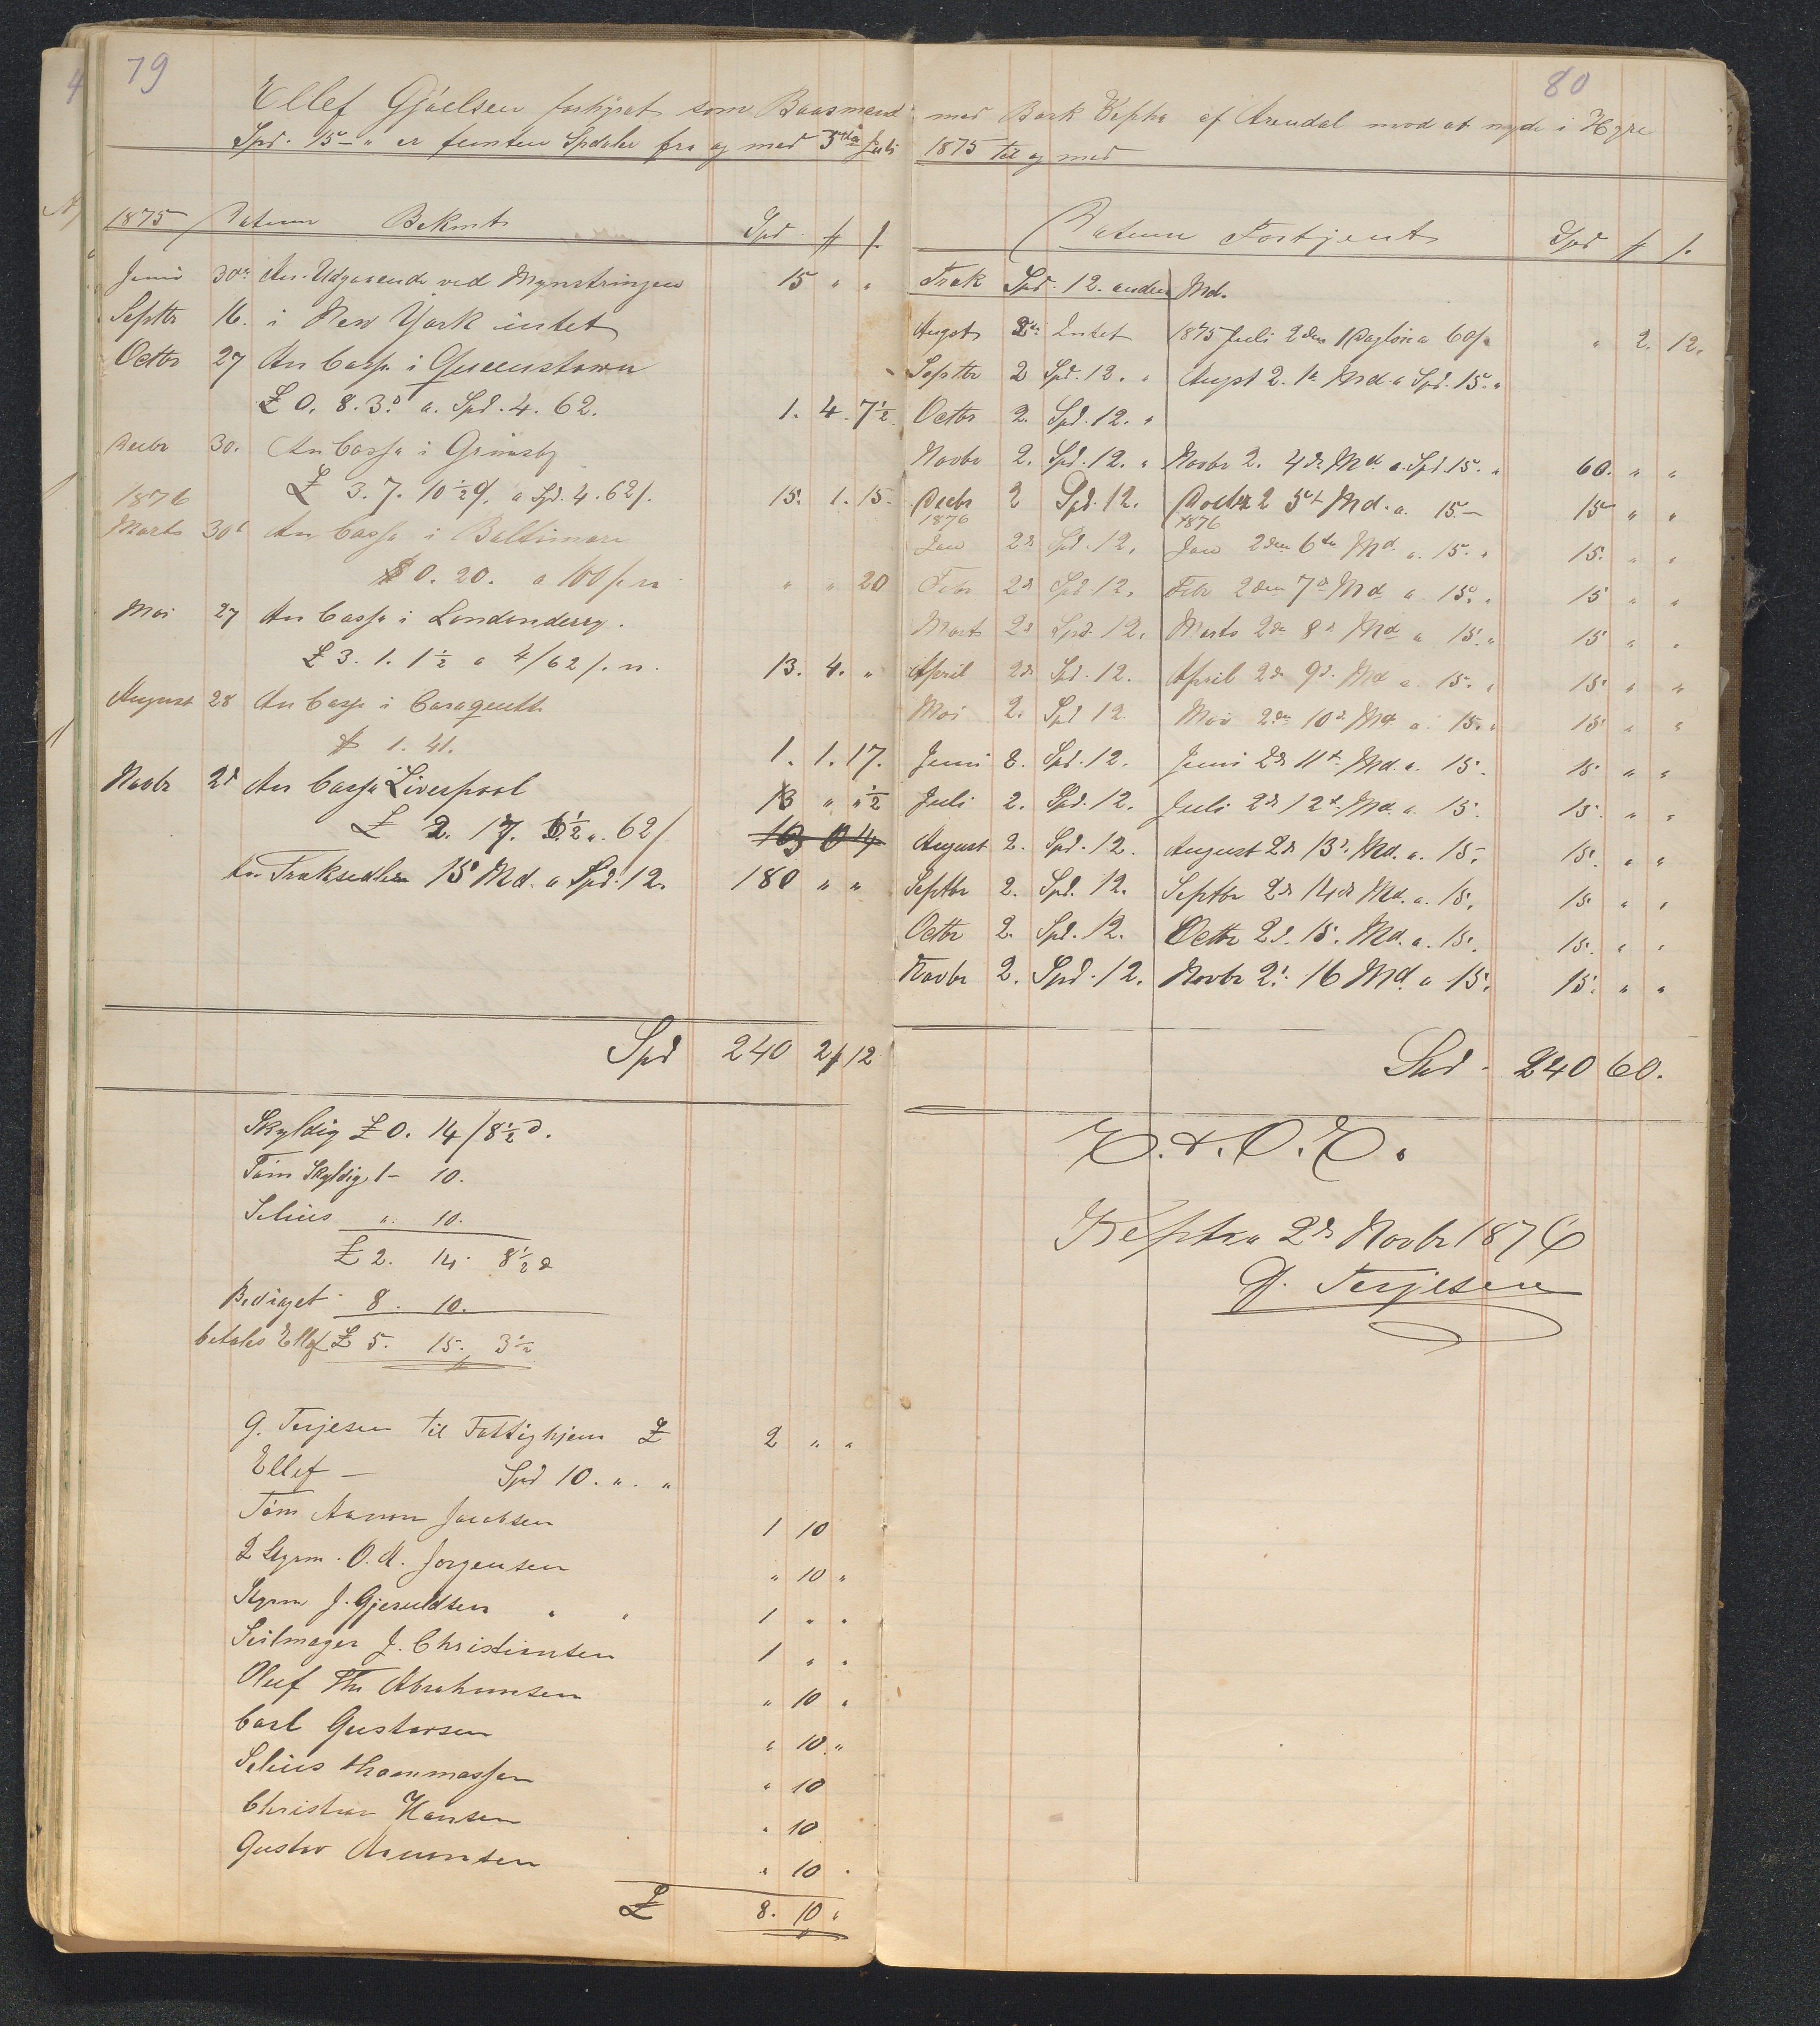 79
Ellef Gjöelsen forhyret som Baasmand
Spd. 15 - " er femten Spdaler fra og med 5te Juli
1875 Datum Bekomt Spd. # s.
Juni 30te An. Udgaaende ved Mynstringen 15 " "
Septbr 16. i New York intet
Octbr 27 An Cassa i Queenstown
£ 0. 8. 3d a. Spd. 4. 62. 1. 4. 7½
Decbr 30. An Cassa i Grimsby
£ 3. 7. 10½ d. a Spd. 4. 62 s. 15. 1. 15.
1876
Marts 30t An Cassa i Baltimore
$ 0. 20. a 100 s. " " 20
Mai 27 An Cassa i Londonderry.
£ 3. 1. 1½ a 4/62 s. n. 13. 4. "
August 28 An Cassa i Caraquette
$ 1. 41. 1. 1. 17.
Novbr 2d An Cassa Liverpool 13 " " ½
£ 2. 17. 6½ a. 62/
An Træksedler 15 Md. a Spd. 12. 180 " "
Spd 240 2 # 12
Skyldig £ 0. 14/8½ d.
Töm Skyldig 1 - 10.
Selius ". 10.
£ 2. 14. 8½ d
Bidraget 8. 10.
betales Ellef £ 5. 15. 3½
G. Terjesen til Fattighjem £ 2 " "
Ellef - Spd 10. ". "
Töm Aanon Jacobsen 1 10
2 Styrm. O. A. Jorgensen " 10 "
Styrm J. Gjeruldsen " " 1 " "
Seilmager J. Christiansen 1 " "
Oluf Th. Abrahamsen " 10 "
Carl Gustavsen " 10. "
Selius Thommassen " 10
Christian Hansen " 10
Gustav Aanonsen " 10
£ 8. 10 "
80
med Bark Kepha af Arendal mod at nyde i Hyre
1875 til og med
Datum Fortjent Spd # s.
Træk Spd. 12. anden Md.
Augst 2de Intet 1875 Juli 2den 1 Daglön a 60 s. " 2. 12.
Septbr 2 Spd. 12. " Augst 2. 1te Md. a Spd. 15. "
Octbr 2. Spd. 12. "
Novbr 2. Spd. 12. " Novbr 2. 4de Md. a. Spd. 15. " 60. " "
Decbr 2 Spd. 12. Decbr 2 5t Md. a. 15 - 15 " "
1876 1876
Jan 2d Spd. 12. Jan 2den 6te Md. a. 15. " 15. " "
Febr 2d Spd. 12. Febr 2den 7d Md a. 15. " 15 " "
Marts 2d Spd. 12. Marts 2de 8d Md a 15. " 15 " "
April 2d Spd. 12. April 2de 9d. Md a. 15. " 15 " "
Mai 2. Spd 12. Mai 2den 10d. Md a. 15. " 15 " "
Juni 2. Spd. 12. Juni 2d 11t. Md. a. 15. 15 " "
Juli 2. Spd. 12. Juli 2d 12t. Md. a. 15. 15. " "
August 2. Spd. 12. August 2d 13d. Md. a. 15. 15. " "
Septbr 2. Spd. 12. Septbr 2d 14d Md. a. 15. 15. " "
Octbr 2. Spd. 12. Octbr 2d. 15. Md. a. 15. 15. " "
Novbr 2. Spd. 12. Novbr 2d. 16 Md. a 15. 15. " "
Spd. 240 60.
E. & O. E.
Kepha 2d Novbr 1876
G. Terjesen